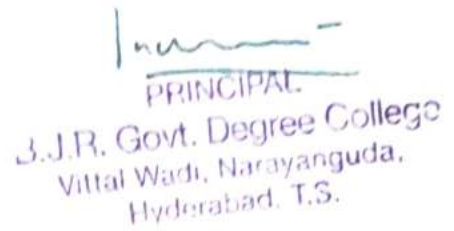 PRINCIPAL
B.J.R. Govt. Degree College
Vittal Wadi, Narayanguda,
Hyderabad. T.S.